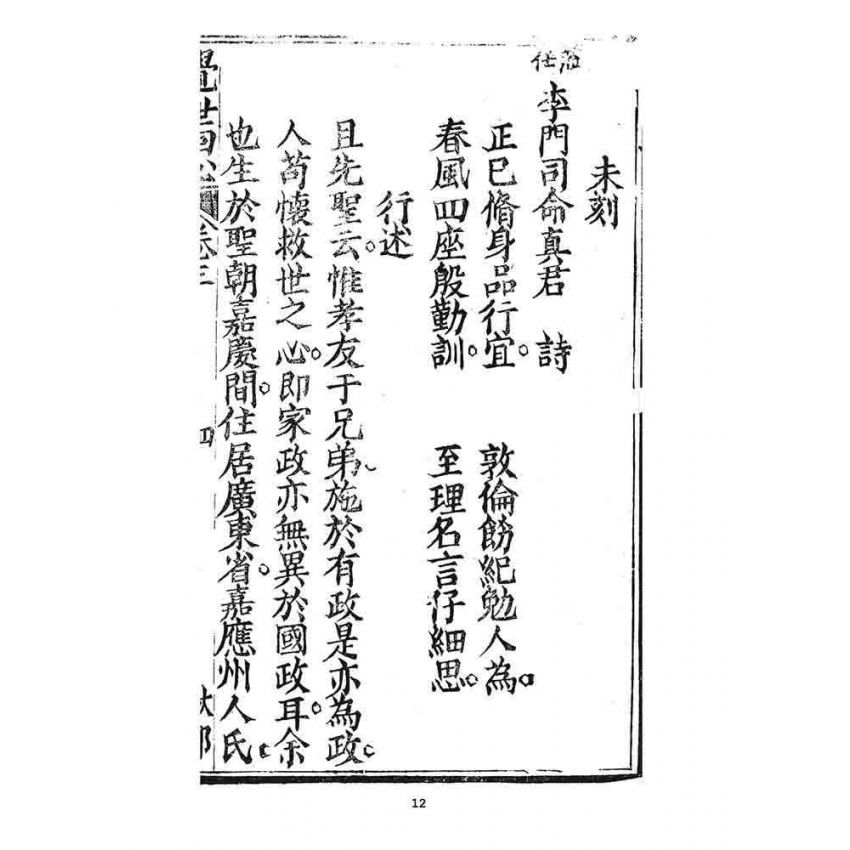 未刻
蒞任
李門司命真君 詩
正已脩身品行宜。 敦倫飭紀勉人為。
春風四座殷勤訓。 至理名言仔細思。
行述
且先聖云。惟孝友于兄弟。施於有政是亦為政。
人苟懷救世之心。即家政亦無異於國政耳。余
也生於聖朝嘉慶間。住居廣東省。嘉應州人氏。
覺世 卷三 四
12